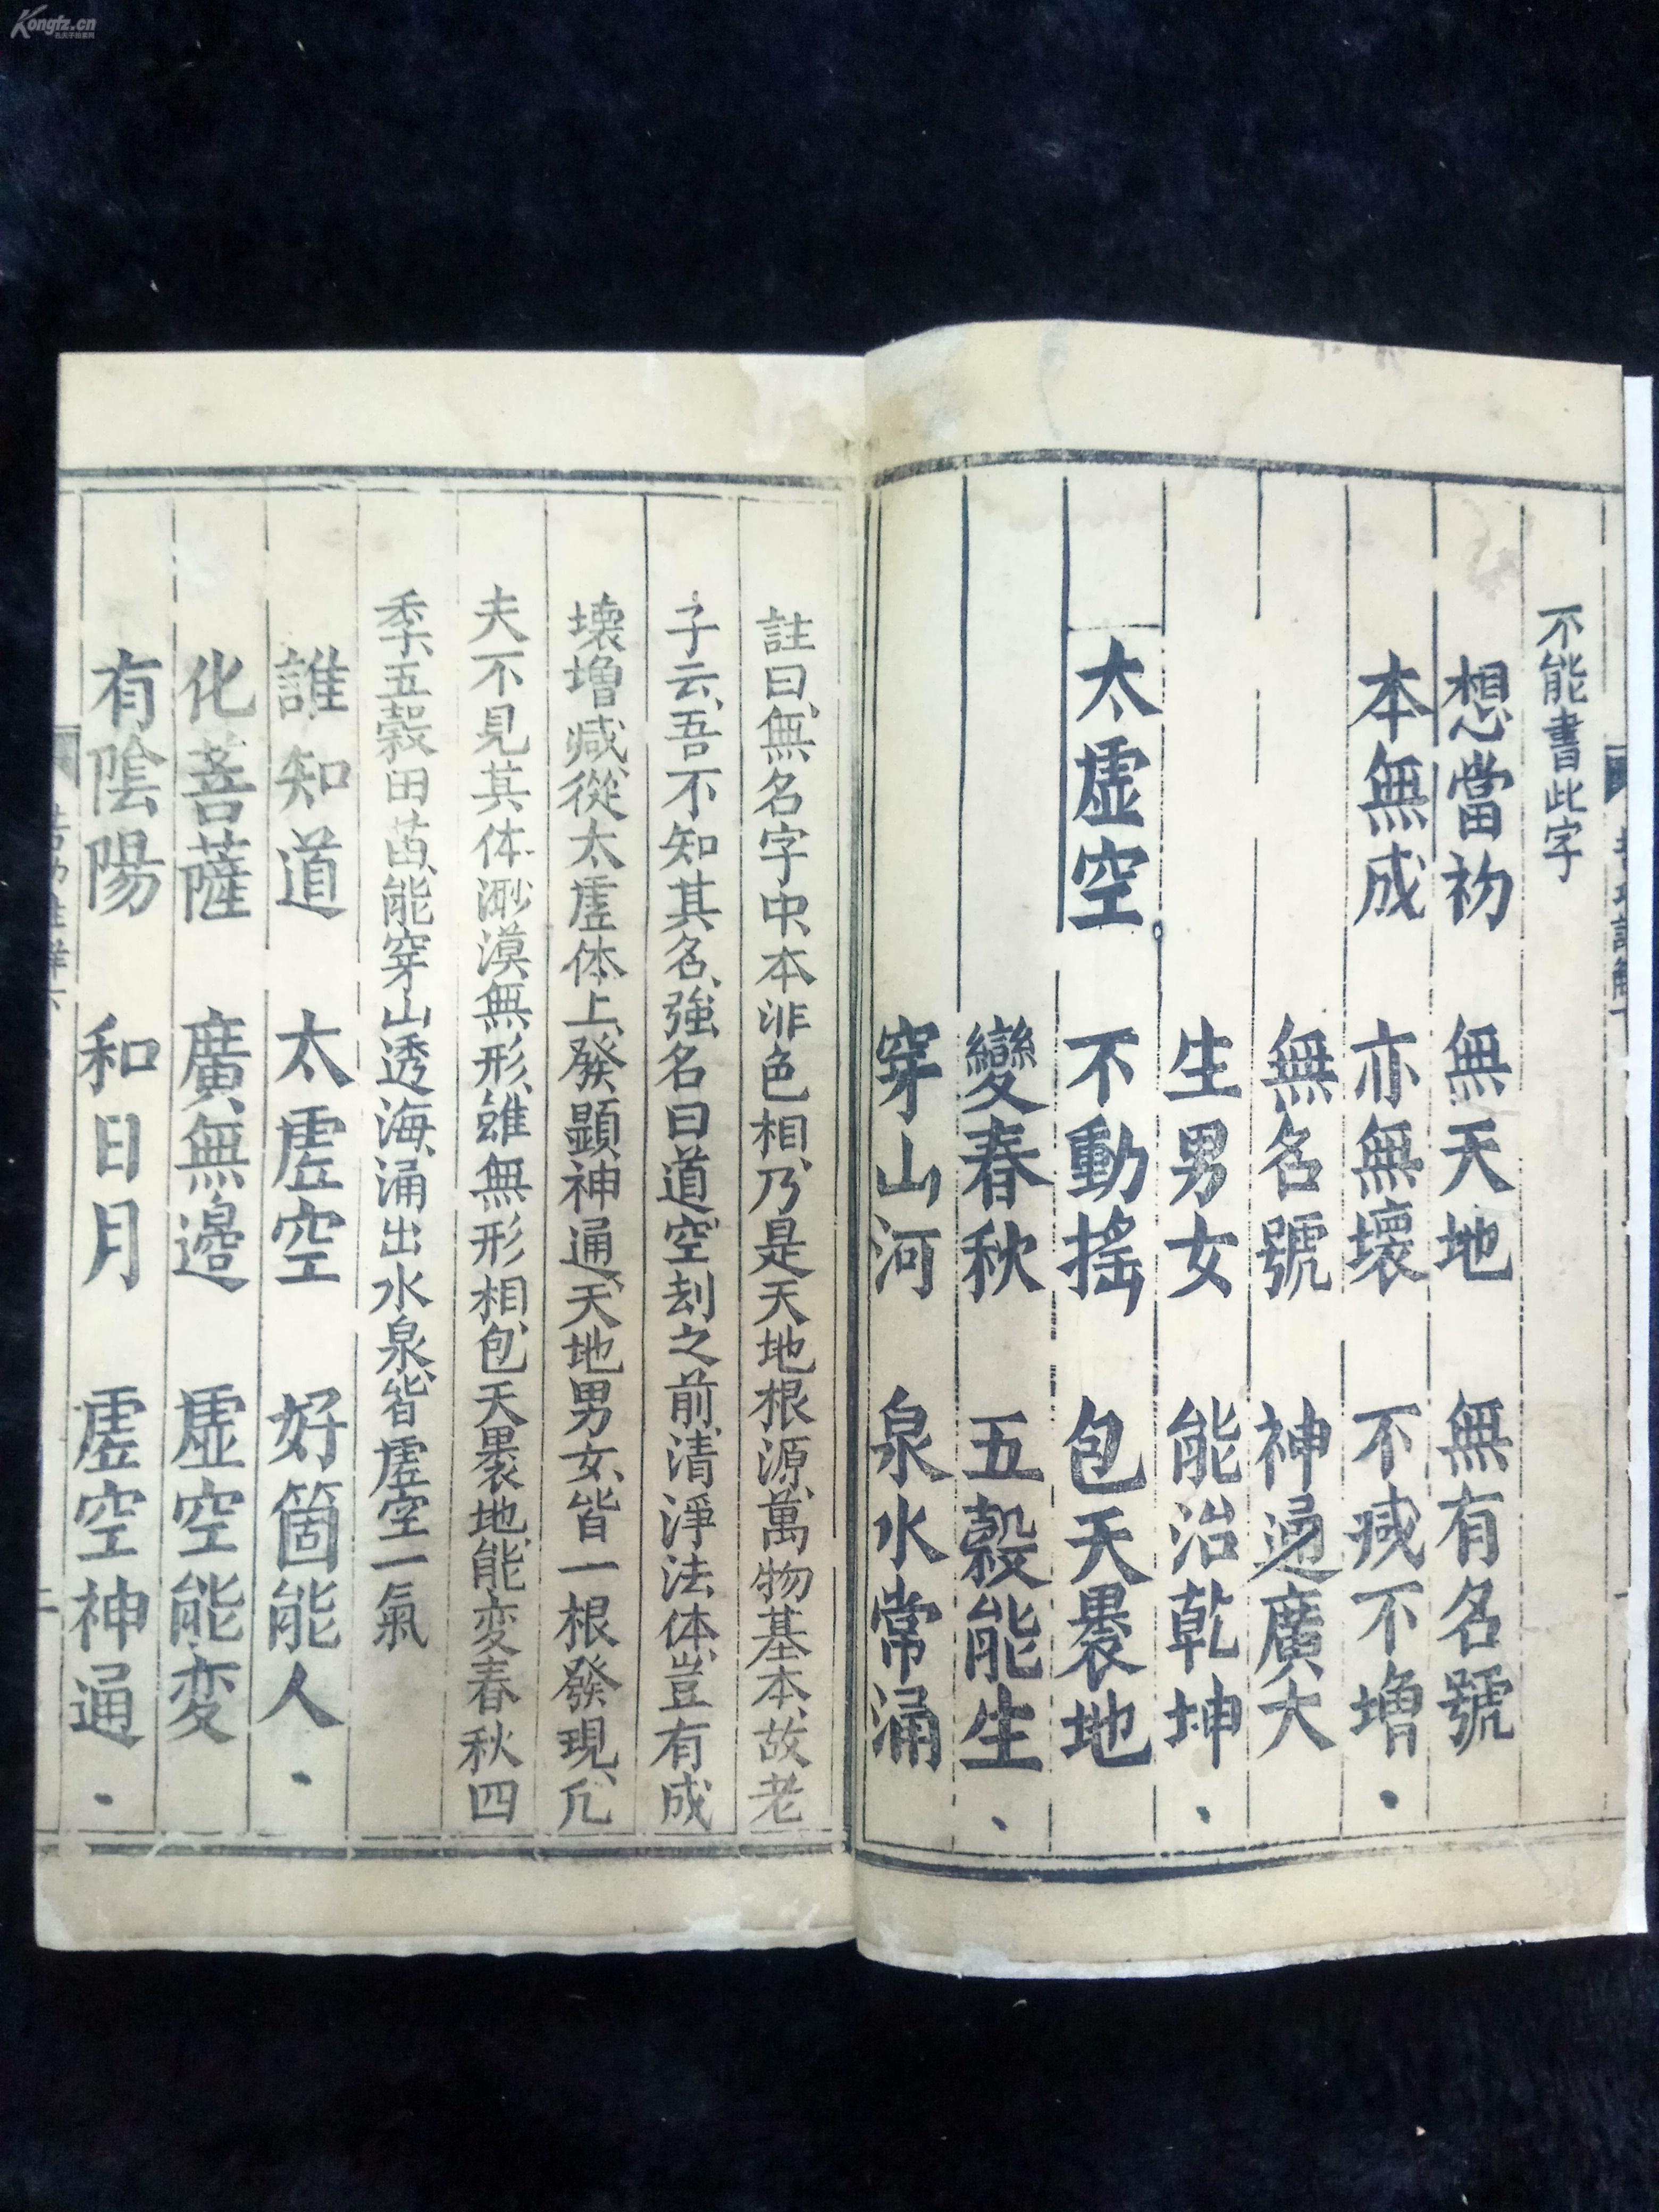 Kongfz.cn
孔夫子拍卖网
不能書此字
想當初 無天地 無有名號
本無成 亦無壞 不减不增
無名號 神通廣大
生男女 能治乾坤
太虛空 不動摇 包天褁地
變春秋 五穀能生
穿山河 泉水常涌
註曰無名字中本非色相乃是天地根源萬物基本故老
子云吾不知其名強名曰道空刦之前清淨法体豈有成
壊增减從太虛体上發顯神通天地男女皆一根發現凢
夫不見其体渺漠無形雖無形相包天褁地能変春秋四
季五穀田苗能穿山透海涌出水泉皆虛空一氣
誰知道 太虛空 好箇能人
化菩薩 廣無邉 虛空能変
有陰陽 和日月 虛空神通